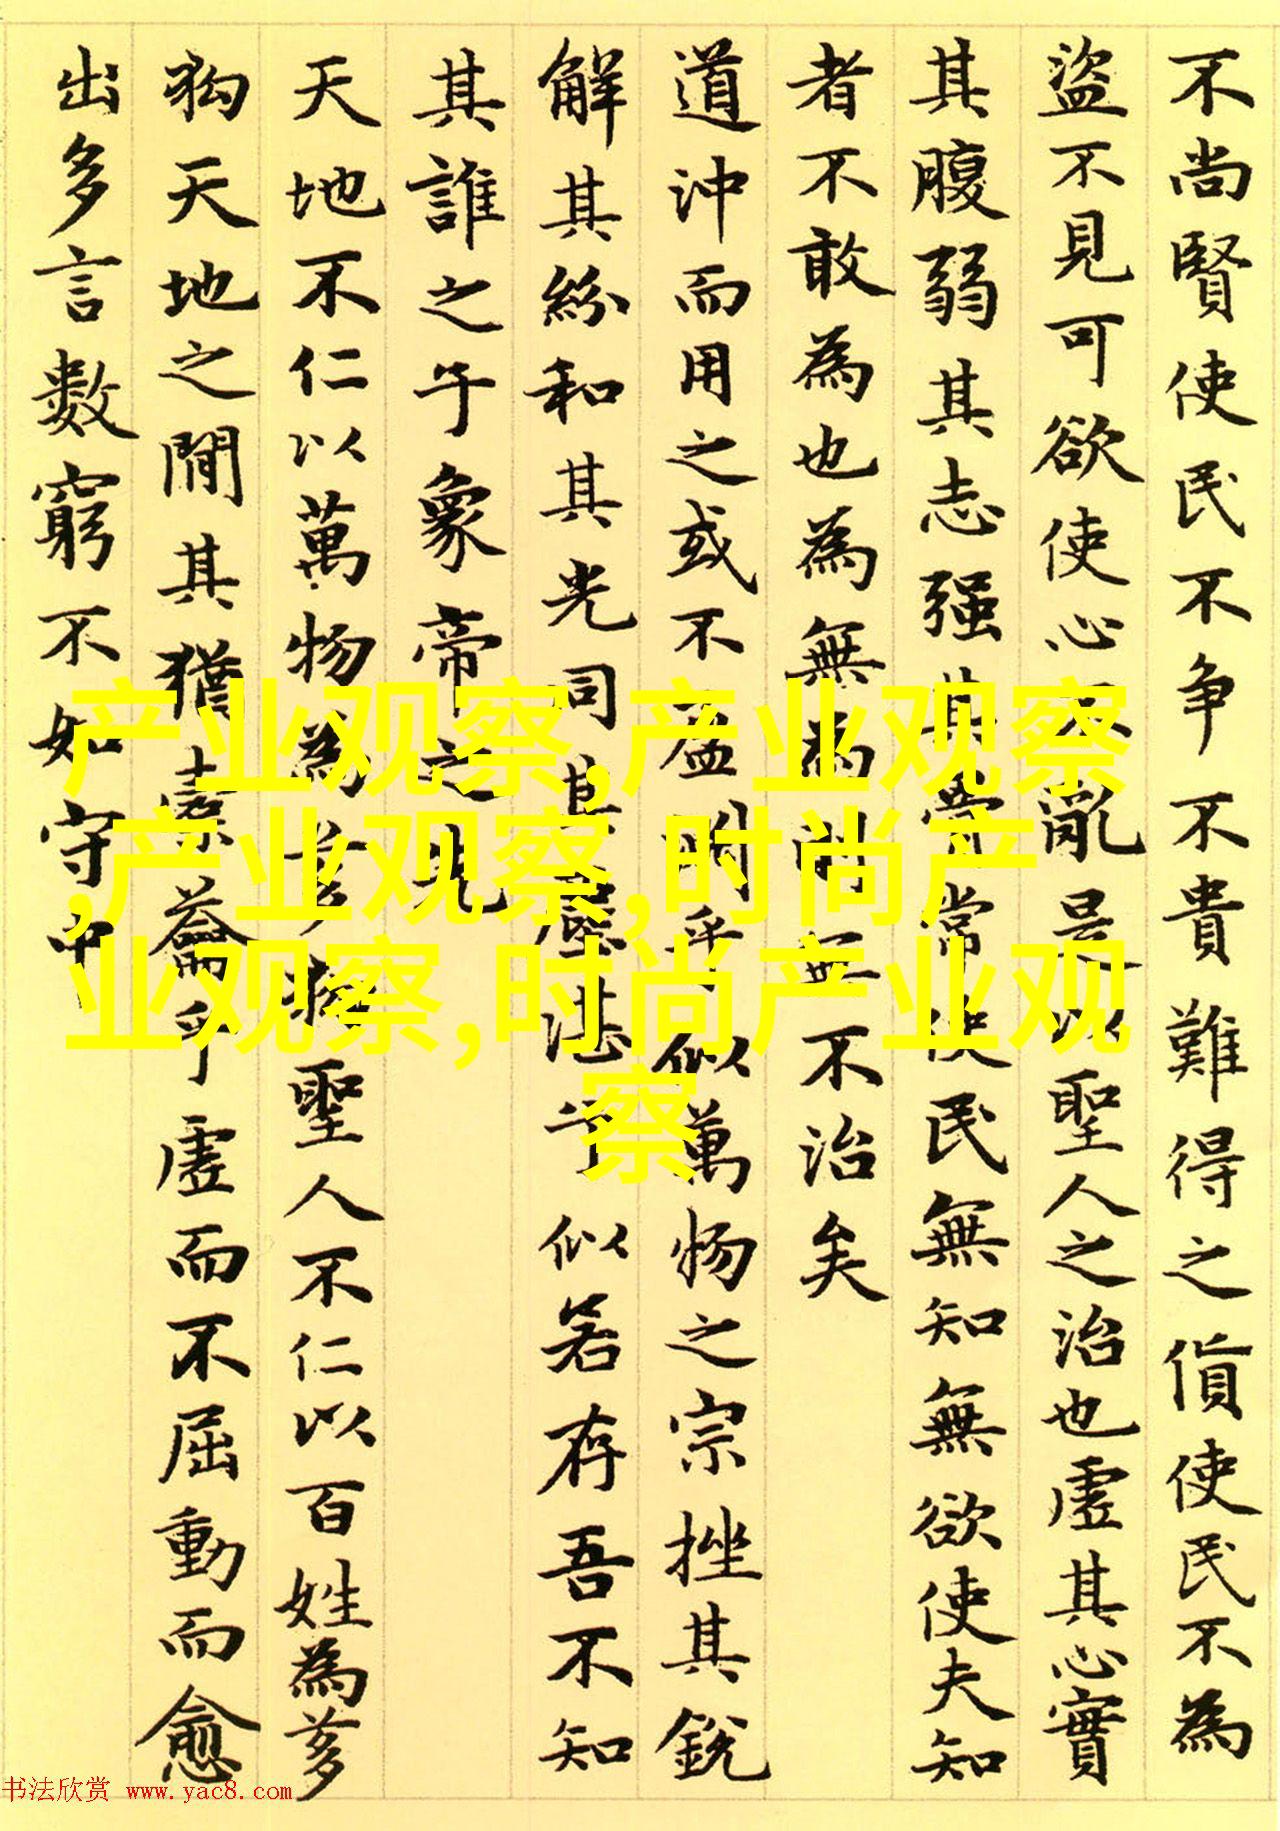 不尚賢使民不争不貴難得之貨使民不為
盜不見可欲使心不亂是以聖人之治也虛其心實
其腹弱其志强其骨常使民無知無欲使夫知
者不敢為也為無為則無不治矣
道沖而用之或不盈淵乎似萬物之宗挫其銳
解其紛和其光同其塵湛乎似若存吾不知
其誰之子象帝之先
天地不仁以萬物為芻狗聖人不仁以百姓為芻
狗天地之閒其猶橐籥乎虛而不屈動而愈
出多言數窮不如守中
产业观察,产业观察
,产业观察,时尚产
业观察,时尚产业观
察
书法欣赏 www.yac8.com